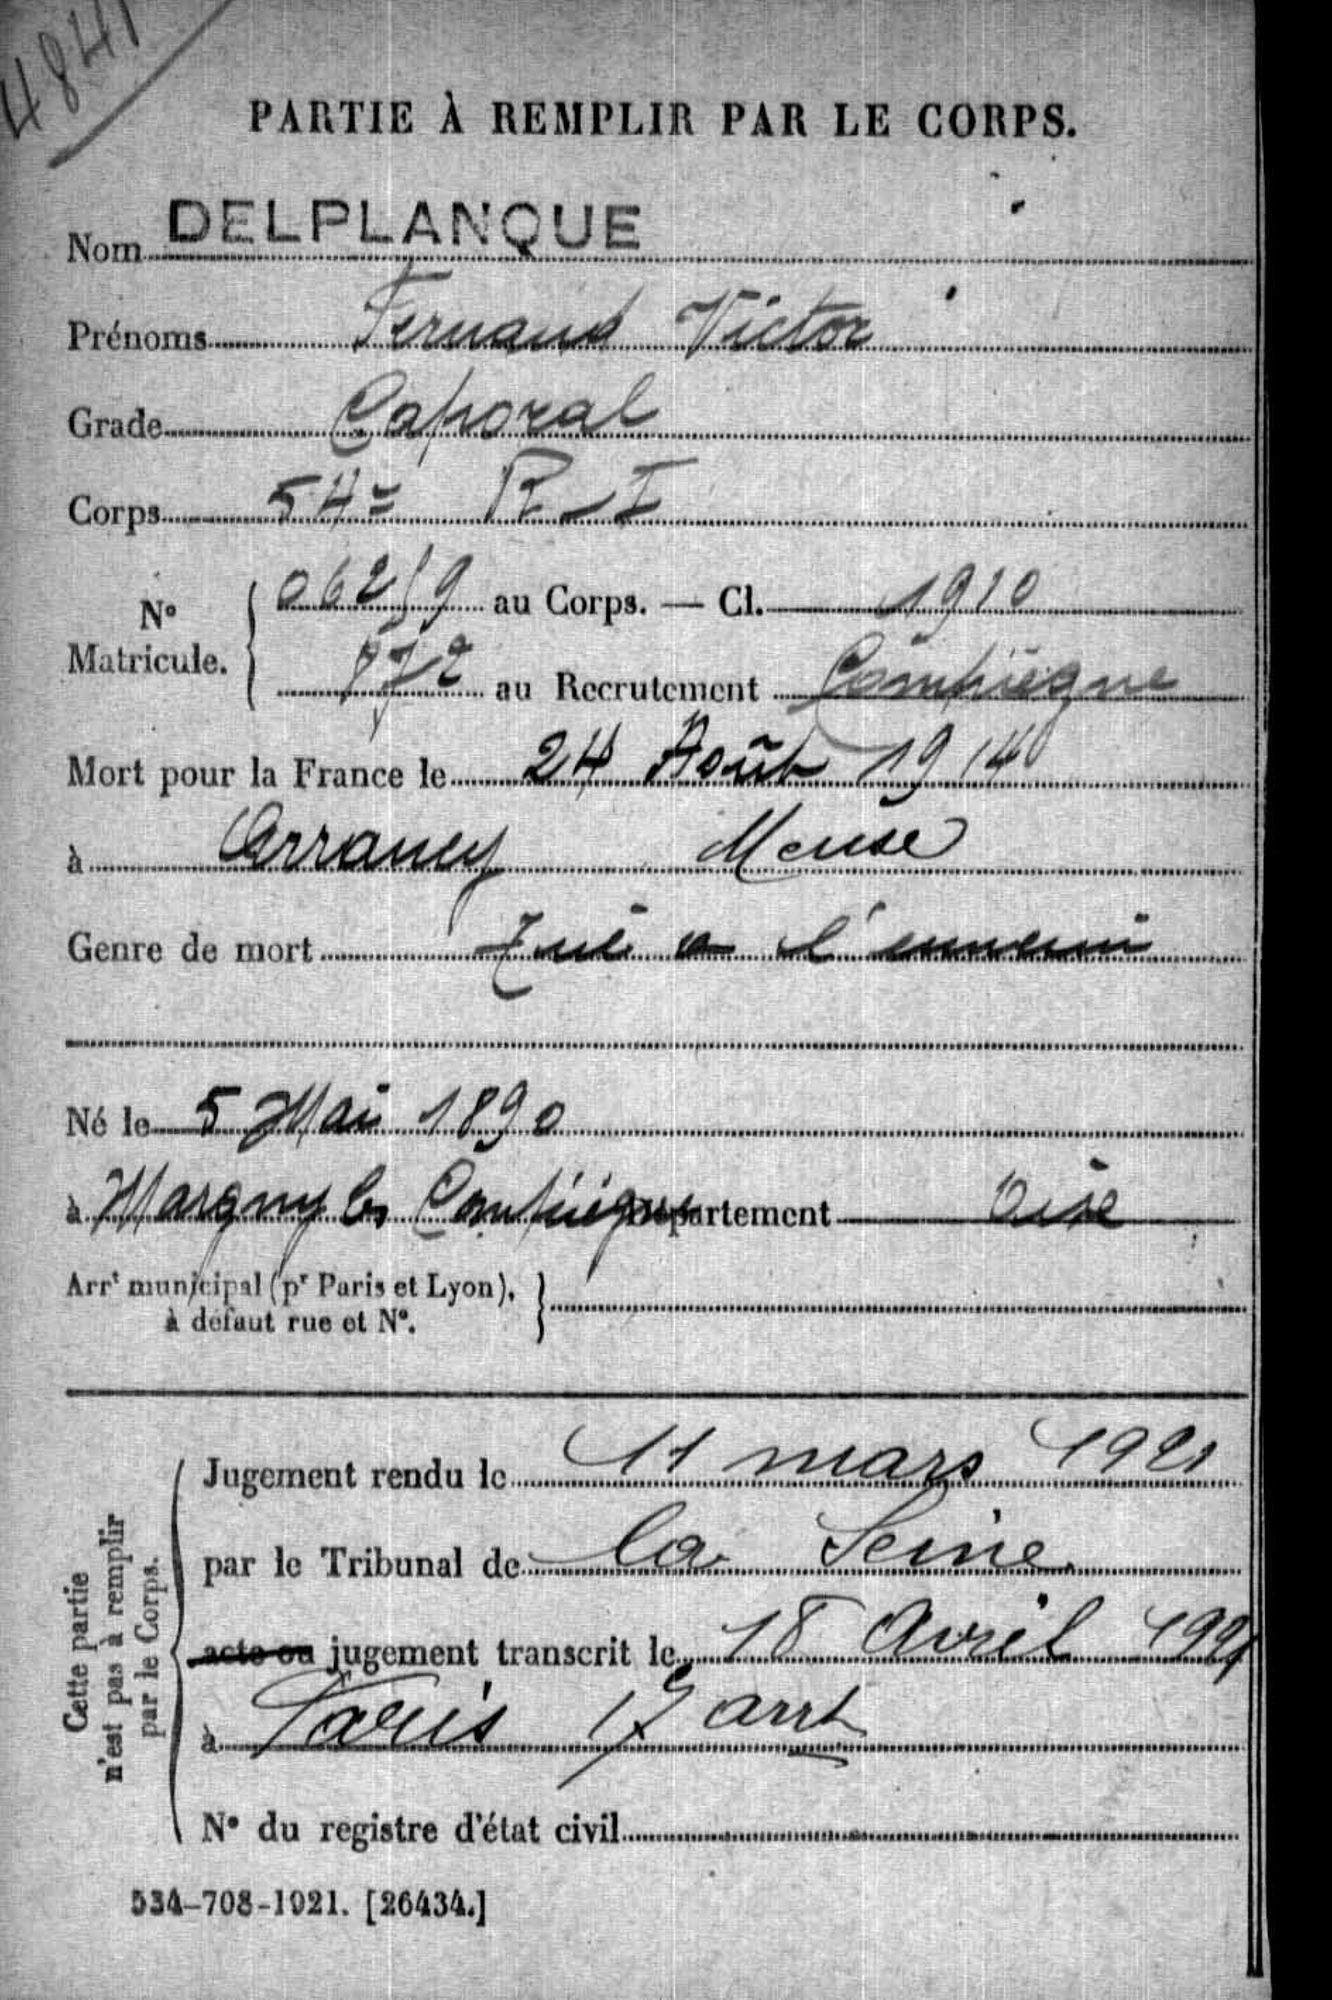 4841
PARTIE À REMPLIR PAR LE CORPS.
Nom DELPLANQUE
Prénoms Fernand Victor
Grade Caporal
Corps 54e R.I
N° Matricule. { 06259 au Corps. — Cl. 1910
772 au Recrutement Compiègne
Mort pour la France le 24 Août 1914
à Arrancy Meuse
Genre de mort Tué à l'ennemi
Né le 5 Mai 1890
à Margny les Compiègne Département Oise
Arrt municipal (pr Paris et Lyon), }
à défaut rue et N°.
Cette partie
n'est pas à remplir
par le Corps.
Jugement rendu le 11 mars 1921
par le Tribunal de la Seine
acte ou jugement transcrit le 18 Avril 1921
à Paris 17 arrt
N° du registre d'état civil
534-708-1921. [26434.]